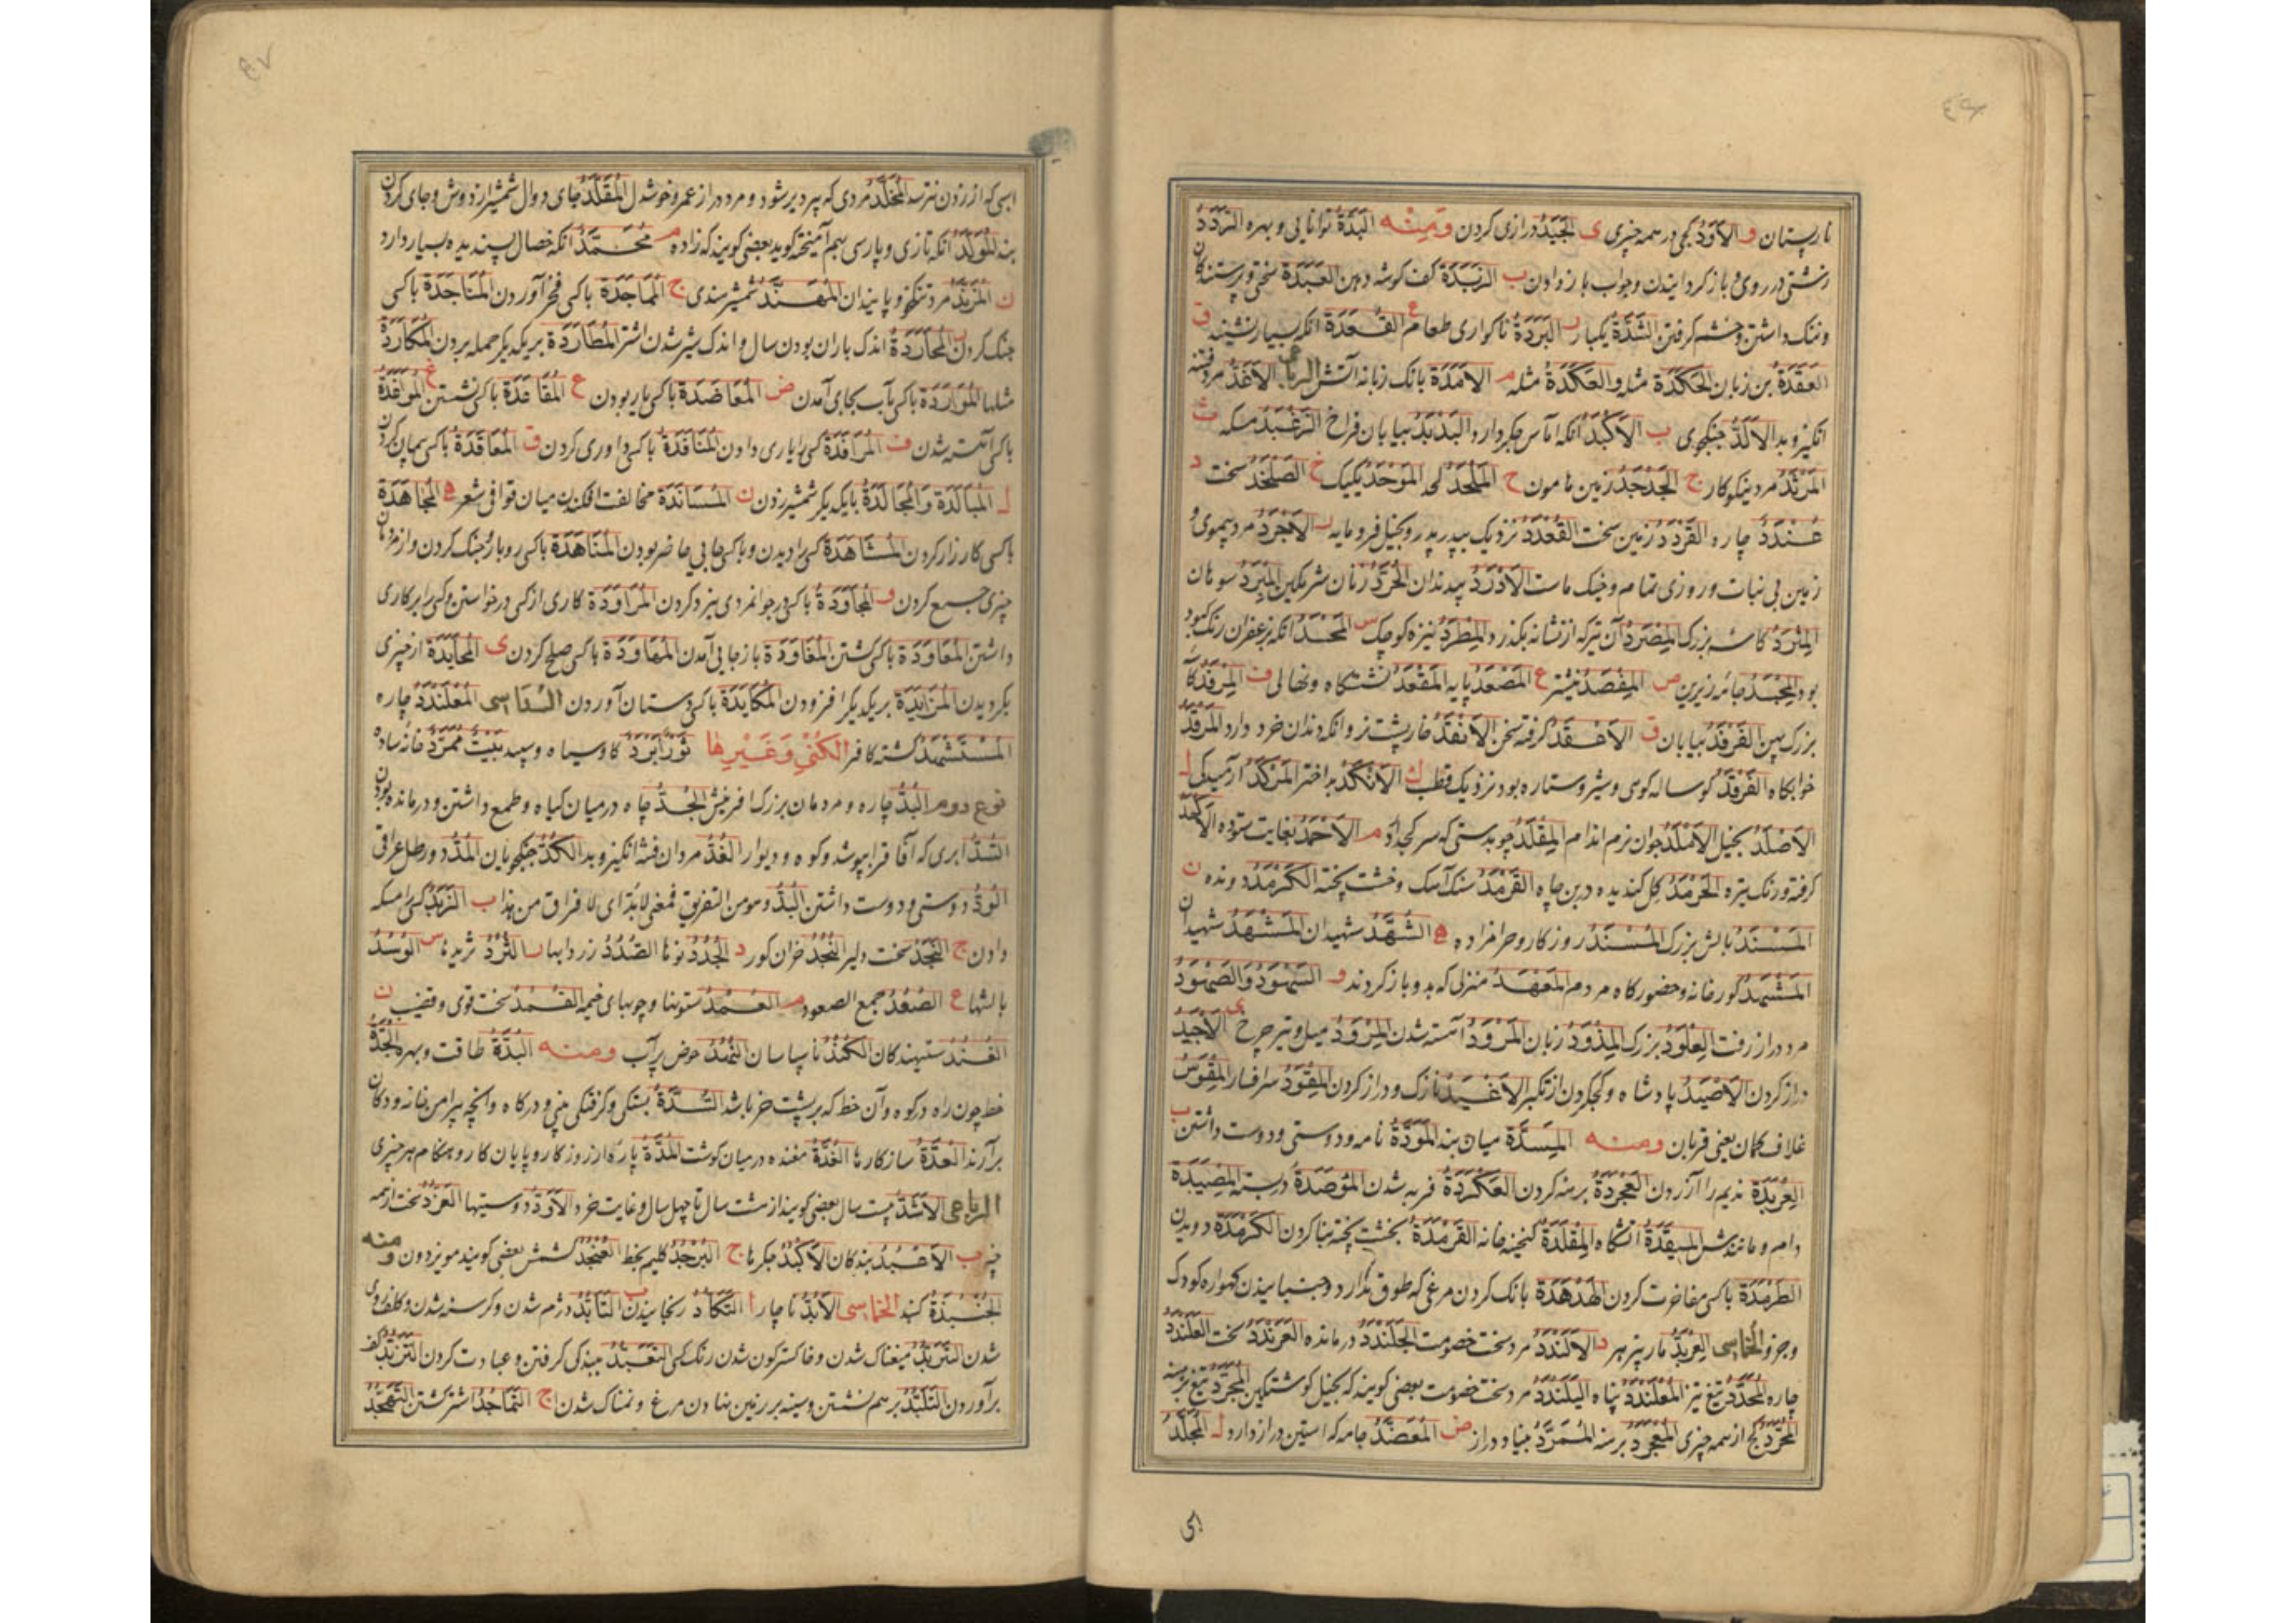 نارپستان و الاَوَدُ کجی در همه چیزی ی الجَیَدُ درازی کردن وَمِنْه البَدَّةُ توانایی و بهره الرَدَدُ
زشتی در روی و باز کردانیدن و جواب باز دادن ب الزَبَدَة کف کوشه دهن العَبَدَة سختی و پرستندکان
و ننک داشتن و خشم کرفتن الشَدَّةُ یکبار ر البَرَدَةُ ناکواری طعام ع القُعَدَة انکه بسیار نشیند ق
العَقَدَةُ بن زبان الحَکَدَة مثله و العَکَدَةُ مثله م الاَمَدَة بانک زبانه آتش الرباعی الاَفَدُّ مرد فتنه
انکیز و بد الاَلَدُّ جنکجوی ب الاَکْبَدُ انکه آماس جکر دارد البَدْبَدُ بیابان فراخ الزَغْبَدُ مسکه ث
المَرْثَدُ مرد نیکوکار ج الجَدْجَدُ زمین هامون ح المَلْحَدُ لحد المَوْحَدُ یکیک خ الصَلْخَدُ سخت د
عُنْدَدُ چاره القَرْدَدُ زمین سخت القُعْدَدُ نزدیک بپدر پدر و بخیل فرومایه ر الاَجْرَدُ مرد بیموی و
زمین بی نبات و روزی تمام و خیک ماست الاَدْرَدُ بیدندان الخُرَّدُ زنان شرمکین المِبْرَدُ سوهان
المِثْرَدُ کاسه بزرک المِصْرَدُ آن تیر که از نشانه بکذرد المِطْرَدُ نیزه کوچک س المُجْسَدُ انکه بزعفران رنک کبود
بود المِجْسَدُ جامه زیرین ص المِفْصَدُ نیشتر ع المَصْعَدُ پایه المَقْعَدُ نشستکاه و نهالی ف المِرْفَدُ کاسه
بزرک پهن الفَرْفَدُ بیابان ق الاَعْقَدُ کرفته سخن الاَنْقَدُ خارپشت نر و انکه دندان خرد دارد المَرْقَدُ
خوابکاه الفَرْقَدُ کوساله کوهی و شیر و ستاره بود نزدیک قطب ک الاَنْکَدُ بد اختر المَرْکَدُ آرمیدکی ل
الاَصْلَدُ بخیل الاَمْلَدُ جوان نرم اندام المِقْلَدُ چوبدستی که سر کج دارد م الاَحْمَدُ بغایت ستوده
کرفته و رنک تیره الحَرْمَدُ کل کندیده در بن چاه القَرْمَدُ سنک آهک و خشت پخته الکَرْمَدُ دونده ن
المَسْنَدُ بالش بزرک المُسْنَدُ روزکار و حرامزاده ه الشُهَّدُ شهیدان المُسْتَشْهَدُ شهیدان
المَشْهَدُ کورخانه و حضور کاه مردم المَعْهَدُ منزلی که بدو باز کردند و السَهْوَدُ وَالصَهْوَدُ
مرد دراز رفت العِلْوَدُ بزرک المِذْوَدُ زبان المَرْوَدُ آهسته شدن المِرْوَدُ میل و تیر چرخ ی الاَجْیَدُ
دراز کردن الاَصْیَدُ پادشاه و کج کردن از تکبر الاَغْیَدُ نازک و دراز کردن المِقْوَدُ سرافسار المِقْوَسُ
غلاف کمان یعنی قربان ومنه المِسَدَّة میان بند المَوَدَّةُ نامه و دوستی و دوست داشتن ب
العَرْبَدَة ندیم را آزردن العَجْرَدَةُ برهنه کردن العَکْرَدَةُ فربه شدن المُؤصَدَةُ دربسته المِصْیَدَة
دام و مانندش المِیقَدَةُ آتشکاه المِقْلَدَةُ کنجینه خانه القَرْمَدَةُ بخشت پخته بنا کردن الکَرْمَدَةُ دویدن
الطَرْمَدَة باکسی مفاخرت کردن الهَدْهَدَة بانک کردن مرغی که طوق ندارد و جنبانیدن کهواره کودک
و جز و الخماسی العِرْبَدُّ مار بیزهر د الاَلَنْدَدُ مرد سخت خصومت الجَلَنْدَدُ درمانده العَرَنْدَدُ سخت العَلَنْدَدُ
چاره المُحَدَّدُ تیغ تیز المُعْلَنْدَدُ پناه الیَلَنْدَدُ مرد سخت خصومت بعضی کویند که بخیل کوشتکین المُجَرَّدُ تیغ برهنه
المُحَرَّدُ کج از همه چیزی المُعَجْرَدُ برهنه المُمَرَّدُ بنیاد دراز ض المُعَضَّدُ جامه که استین دراز دارد ل المُجَلَّدُ
اسی
اسبی که از زدن نترسد المُخَلَّدُ مردی که پیر دیر شود و مرد دراز عمر و خوشدل المُقَلَّدُ جای دوال شمشیر از دوش و جای کردن
بند المُوَلَّدُ انکه تازی و پارسی بهم آمیخته کوید بعضی کویند که زاده م مُحَمَّدُ انکه خصال پسندیده بسیار دارد
ن المُزَنَّدُ مرد تنکخو و پایندان المُهَنَّدُ شمشیر هندی ج المُمَاجَدَة باکسی فخر آوردن المُنَاجَدَة باکسی
جنک کردن ر المُحَارَدَةُ اندک باران بودن سال و اندک شیر شدن اشتر المُطَارَدَة بر یکدیکر حمله بردن المُکَارَدَةُ
مثلها المُوَارَدَة باکسی بآب بجای آمدن ض المُعَاضَدَة باکسی یار بودن ع المُقَاعَدَة باکسی نشستن غ المُوَاغَدَةُ
باکسی آهسته شدن ف المُرَافَدَة کسی را یاری دادن المُنَافَدَة باکسی داوری کردن ق المُعَاقَدَة باکسی پیمان کردن
ل المُبَالَدَة وَالمُجَالَدَةُ با یکدیکر شمشیر زدن ن المُسَانَدَة مخالفت افکندن میان قوافی شعر ه المُجَاهَدَة
باکسی کارزار کردن المُشَاهَدَة کسی را دیدن و باکسی جایی حاضر بودن المُنَاهَدَة باکسی روباروی جنک کردن و از مردمان
چیزی جمع کردن و المُجَاوَدَةُ باکسی در جوانمردی نبرد کردن المُرَاوَدَة کاری از کسی درخواستن و کسی را بر کاری
داشتن المُعَاوَدَة باکسی کشتن المُعَاوَدَة باز جایی آمدن المُهَاوَدَة باکسی صلح کردن ی المُحَایَدَة از چیزی
بکردیدن المُزَایَدَة بر یکدیکر افزودن المُکَایَدَة باکسی دستان آوردن السُداسی المُعْلَنْدَدُ چاره
المُسْتَشْهَدُ کشته کافر الکُنٰی وَغَیْرِهٰا ثَوْرُ اَبْرَدُ کاو سیاه و سپید بَیْتُ مُمَرَّدُ خانه ساده
نوع دوم البُدُّ چاره و مردمان بزرک آفرینش الجُدُّ چاه در میان کیاه و طمع داشتن و درمانده بودن
السُدُّ ابری که آفاق فراپوشد و کوه و دیوار الغُدُّ مردان فتنه انکیز و بد الکُدُّ جنکجویان المُدُّ دو رطل عراقی
الوُدُّ دوستی و دوست داشتن البُدُّ و هو من التفریق فمعنی لابُدّ ای لا فراق من هذا ب الزُبْدُ کسی را مسکه
دادن ج النُجُدُ سخت دلیر النُجُدُ خران کور د الجُدُدُ نوها الصُدُدُ زردابها ر الثُرُدُ تریدها س الوُسُدُ
بالشها ع الصُعُدُ جمع الصعود م العُمُدُ ستونها و چوبهای خیمه القُمُدُ سخت قوی و قضیب ن
العُنُدُ ستیهندکان الکُنُدُ ناسپاسان الثُمُدُ حوض پر آب ومنه البُدَّةُ طاقت و بهره الجُدَّةُ
خط چون راه در کوه و آن خط که بر پشت خر باشد السُدَّةُ بستکی و کرفتکی بینی و درکاه و آنچه پیرامن خانه و دکان
برآرند العُدَّةُ سازکارها الغُدَّةُ مغنده در میان کوشت المُدَّةُ پاره از روزکار و پایان کار و هنکام هر چیزی
الرباعی الاَشُدُّ بیست سال بعضی کویند از هشت سال تا چهل سال و غایت خرد الاَوُدُّ دوستیها العُرُدُّ سخت از همه
چیز ب الاَعْبُدُ بندکان الاَکْبُدُ جکرها ج البُرْجُدُ کلیم بخط العُنْجُدُ کشمش بعضی کویند مویز دون ومنه
الجُنْبُذَةُ کنبد الخماسی الاَبُدُّ ناچار ا التَکَأُّد رنجانیدن ب التَأَبُّدُ دژم شدن و کرسنه شدن و کلف روی
شدن التَرَبُّدُ میغناک شدن و خاکسترکون شدن رنک کسی التَعَبُّدُ ببندکی کرفتن و عبادت کردن التَزَبُّدُ کف
برآوردن التَلَبُّدُ بر هم نشستن و سینه بر زمین نهادن مرغ و نمناک شدن ج التَمَاجُدُ اشتر کشتن التَهَجُّدُ